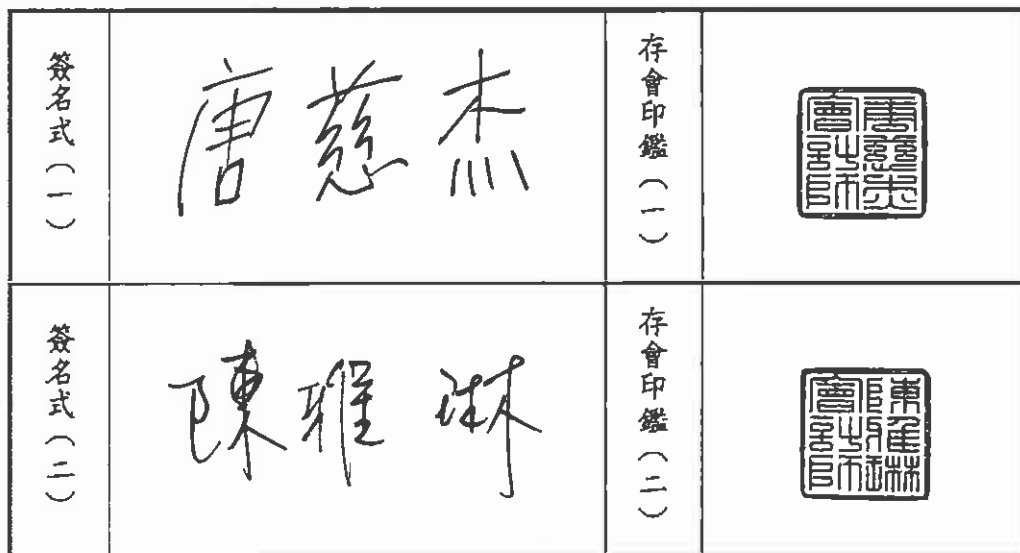 簽名式(一) 唐慈杰 存會印鑑(一) 唐慈杰會計師
簽名式(二) 陳雅琳 存會印鑑(二) 陳雅琳會計師